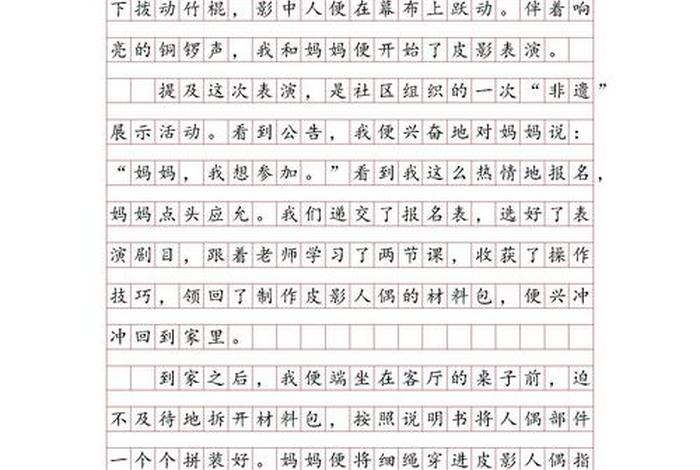 下拨动竹棍，影中人便在幕布上跃动。伴着响
亮的铜锣声，我和妈妈便开始了皮影表演。
提及这次表演，是社区组织的一次“非遗”
展示活动。看到公告，我便兴奋地对妈妈说：
“妈妈，我想参加。”看到我这么热情地报名，
妈妈点头应允。我们递交了报名表，选好了表
演剧目，跟着老师学习了两节课，收获了操作
技巧，领回了制作皮影人偶的材料包，便兴冲
冲回到家里。
到家之后，我便端坐在客厅的桌子前，迫
不及待地拆开材料包，按照说明书将人偶部件
一个个拼装好。妈妈便将细绳穿进皮影人偶指